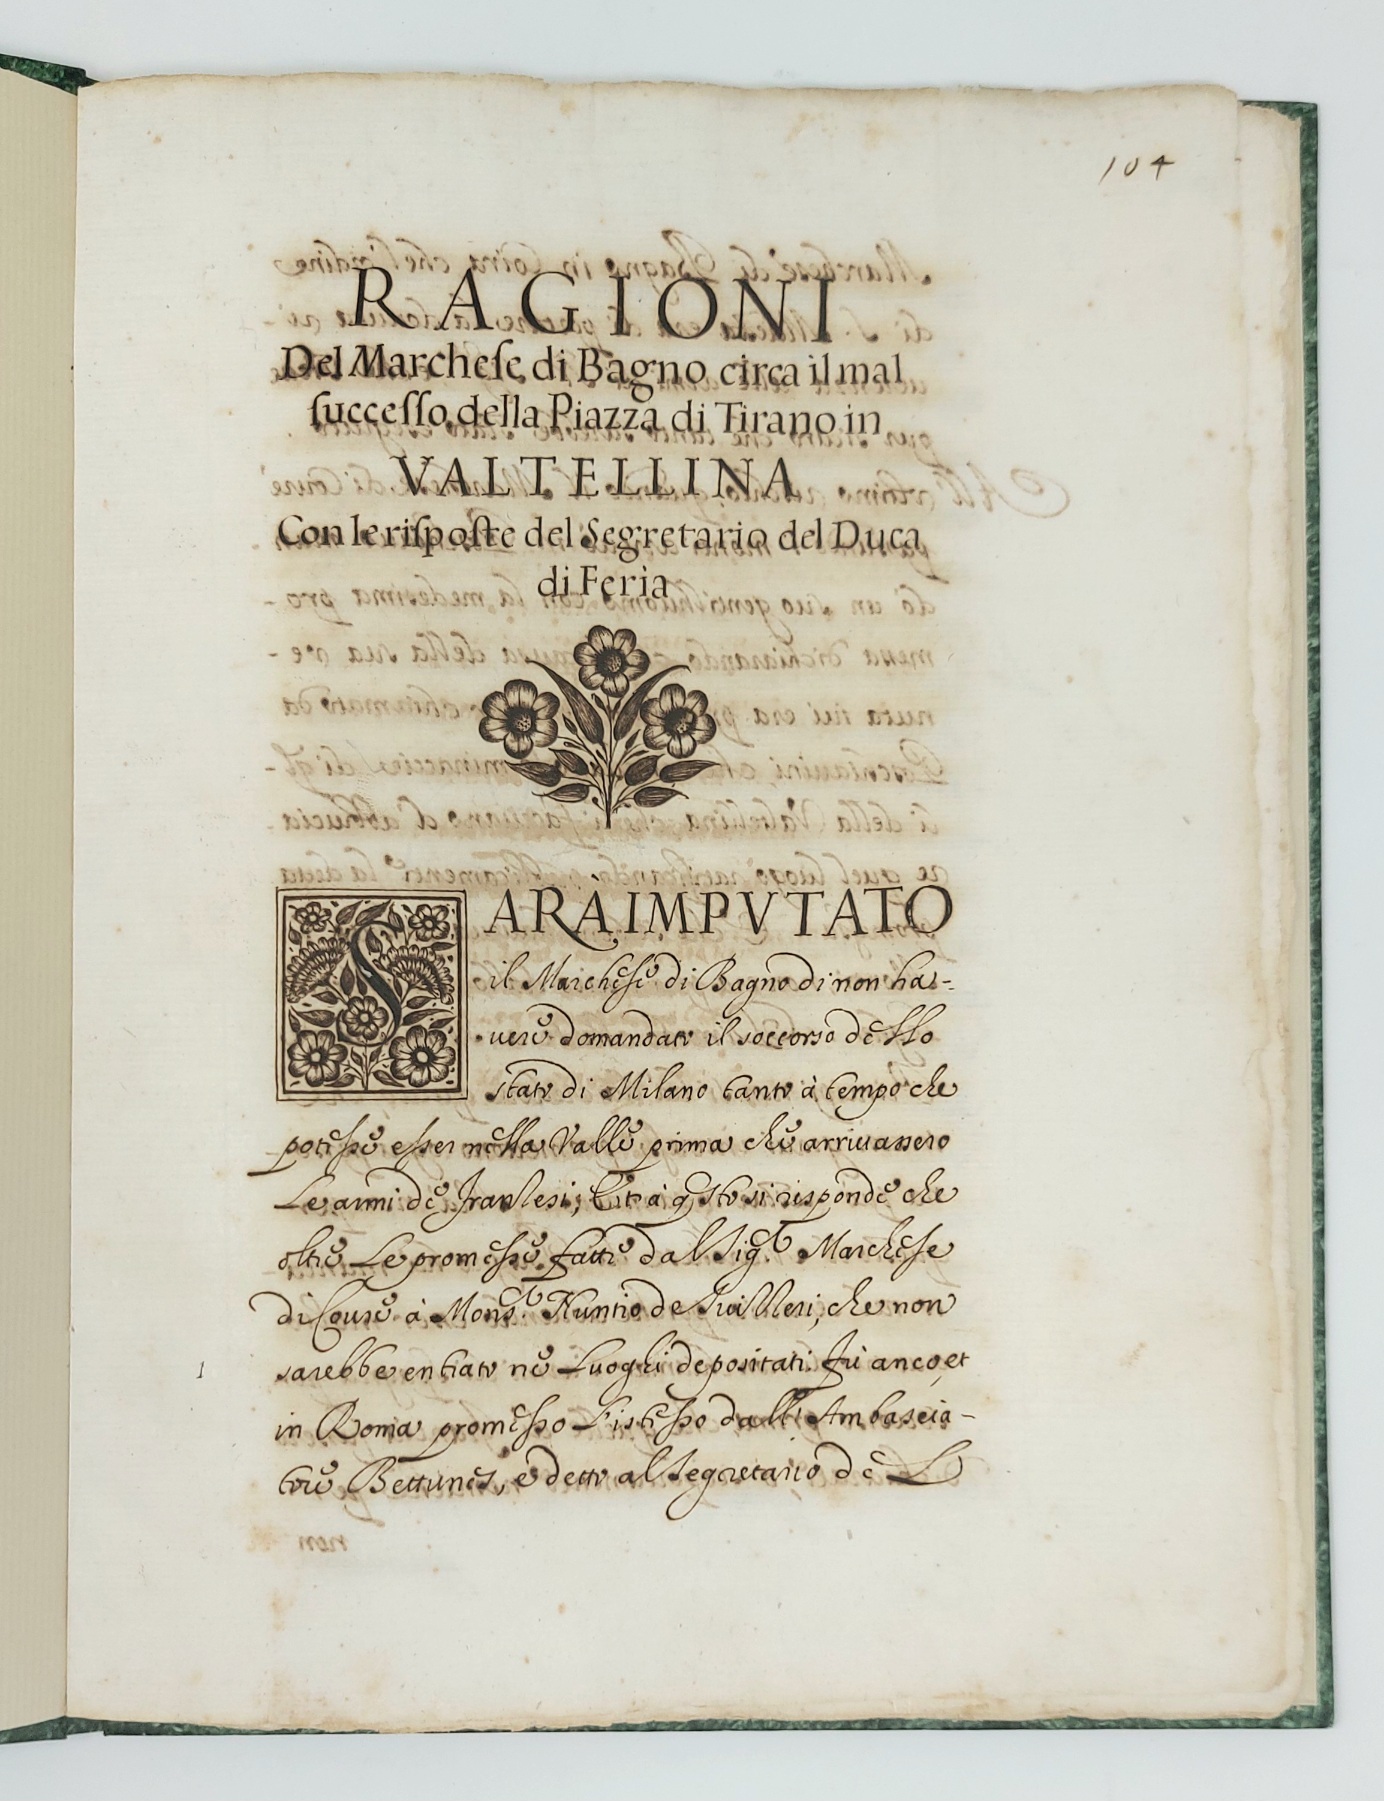 104
RAGIONI
Del Marcheſe di Bagno circa il mal
ſucceſſo della Piazza di Tirano in
VALTELLINA
Con le riſpoſte del Segretario del Duca
di Feria
SARÀ IMPVTATO
il Marchese di Bagno di non ha-
uere domandato il soccorso dello
stato di Milano tanto à tempo che
potesse esser nella Valle prima che arriuassero
Le armi de franzesi; à qsto si risponde che
oltre Le promesse fatte dal Sigr. Marchese
di Couré à Monsr. Nuntio de Suizzeri, che non
sarebbe entrato ne Luoghi depositati. Fù anco, et
1
in Roma promesso L'istesso dall' Ambascia-
tore Bettunes, e detto al Segretario de L